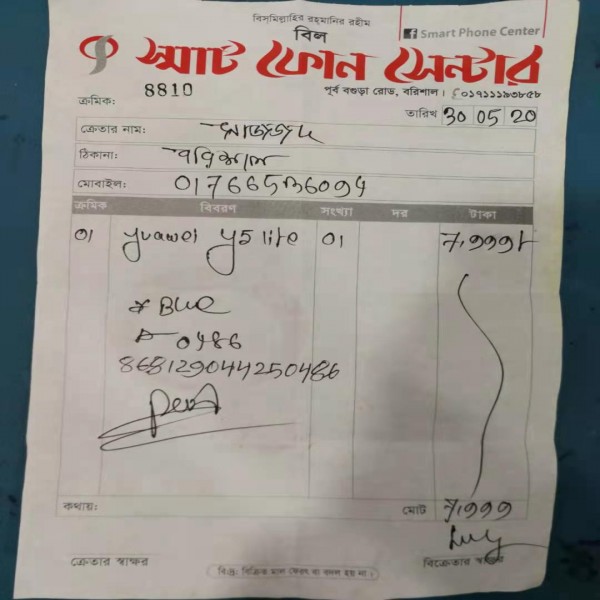 বিসমিল্লাহির রহমানির রহীম
বিল
Smart Phone Center
স্মার্ট ফোন সেন্টার
পূর্ব বগুড়া রোড, বরিশাল। ০১৭১১১৯৩৮৫৮
ক্রমিক: 8810
তারিখ 30 05 20
ক্রেতার নাম:
ঠিকানা: বরিশাল
মোবাইল:
ক্রমিক বিবরণ সংখ্যা দর টাকা
01 Huawei y5 lite 01 7,999/-
Blue
0486
868129044250486
কথায়: মোট 7,999
ক্রেতার স্বাক্ষর
বিঃদ্রঃ বিক্রিত মাল ফেরৎ বা বদল হয় না।
বিক্রেতার স্বাক্ষর